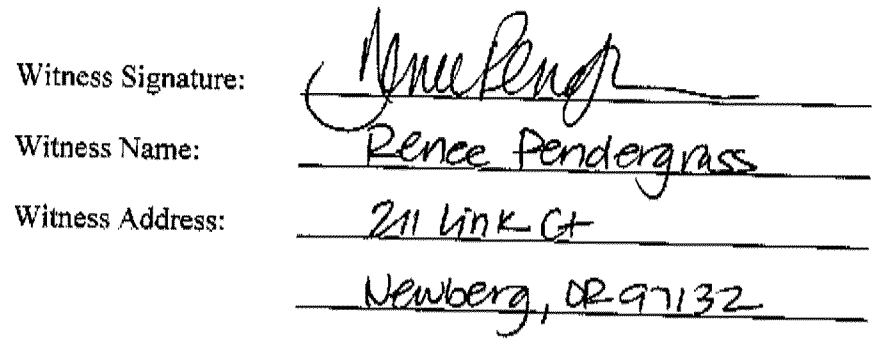 Witness Signature: Renee Pend
Witness Name: Renee Pendergrass
Witness Address: 211 Link Ct
Newberg, OR 97132